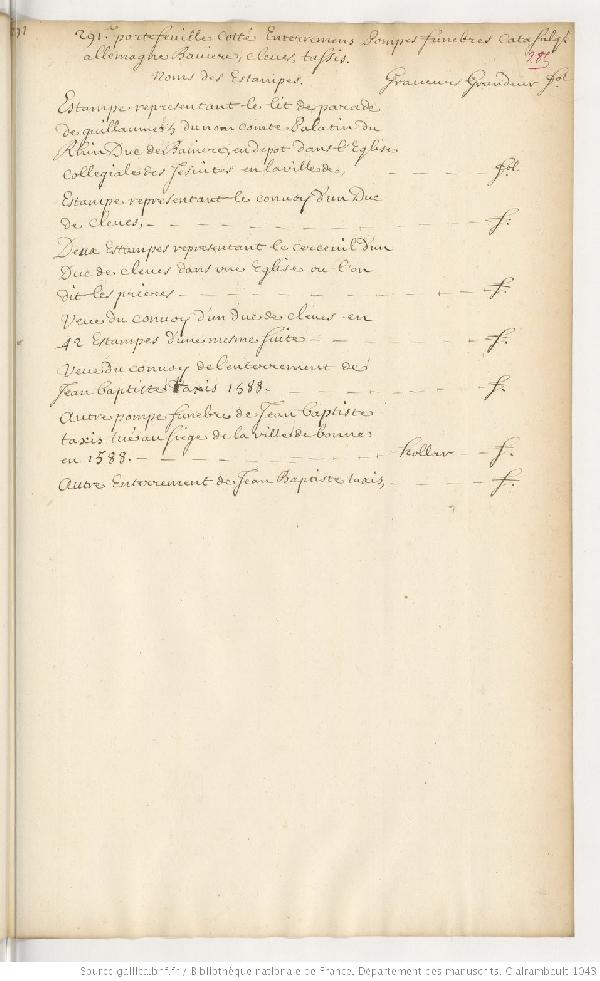 291.e portefeuille Cotté Enterremens Pompes funebres Catafalqs
allemagne Baviere, cleves, tassis.
285
Noms des Estampes. Graveurs Grandeur fol
Estampe representant le lit de parade
de guillaume du nom comte Palatin du
Rhin Duc de Baviere, en depot dans l'Eglise
Collegiale des Jesuites en la ville de, fol
Estampe representant le convoy d'un Duc
de cleves, f.
Deux Estampes representant le cerceuil d'un
Duc de cleves dans une Eglise ou l'on
dit les prieres f.
Veue du convoy d'un Duc de cleves en
42 Estampes d'une mesme suite f.
Veue du convoy de l'enterrement de
Jean baptiste taxis 1588. f.
Autre pompe funebre de Jean baptiste
taxis tué au siege de la ville de bonne
en 1588. hollar f.
Autre Enterrement de Jean Baptiste taxis, f.
Source gallica.bnf.fr / Bibliothèque nationale de France. Département des manuscrits. Clairambault 1043